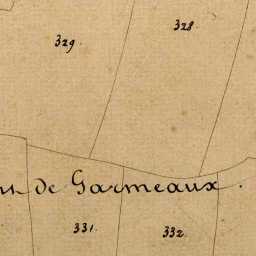 328
329
de Garmeaux.
331
332